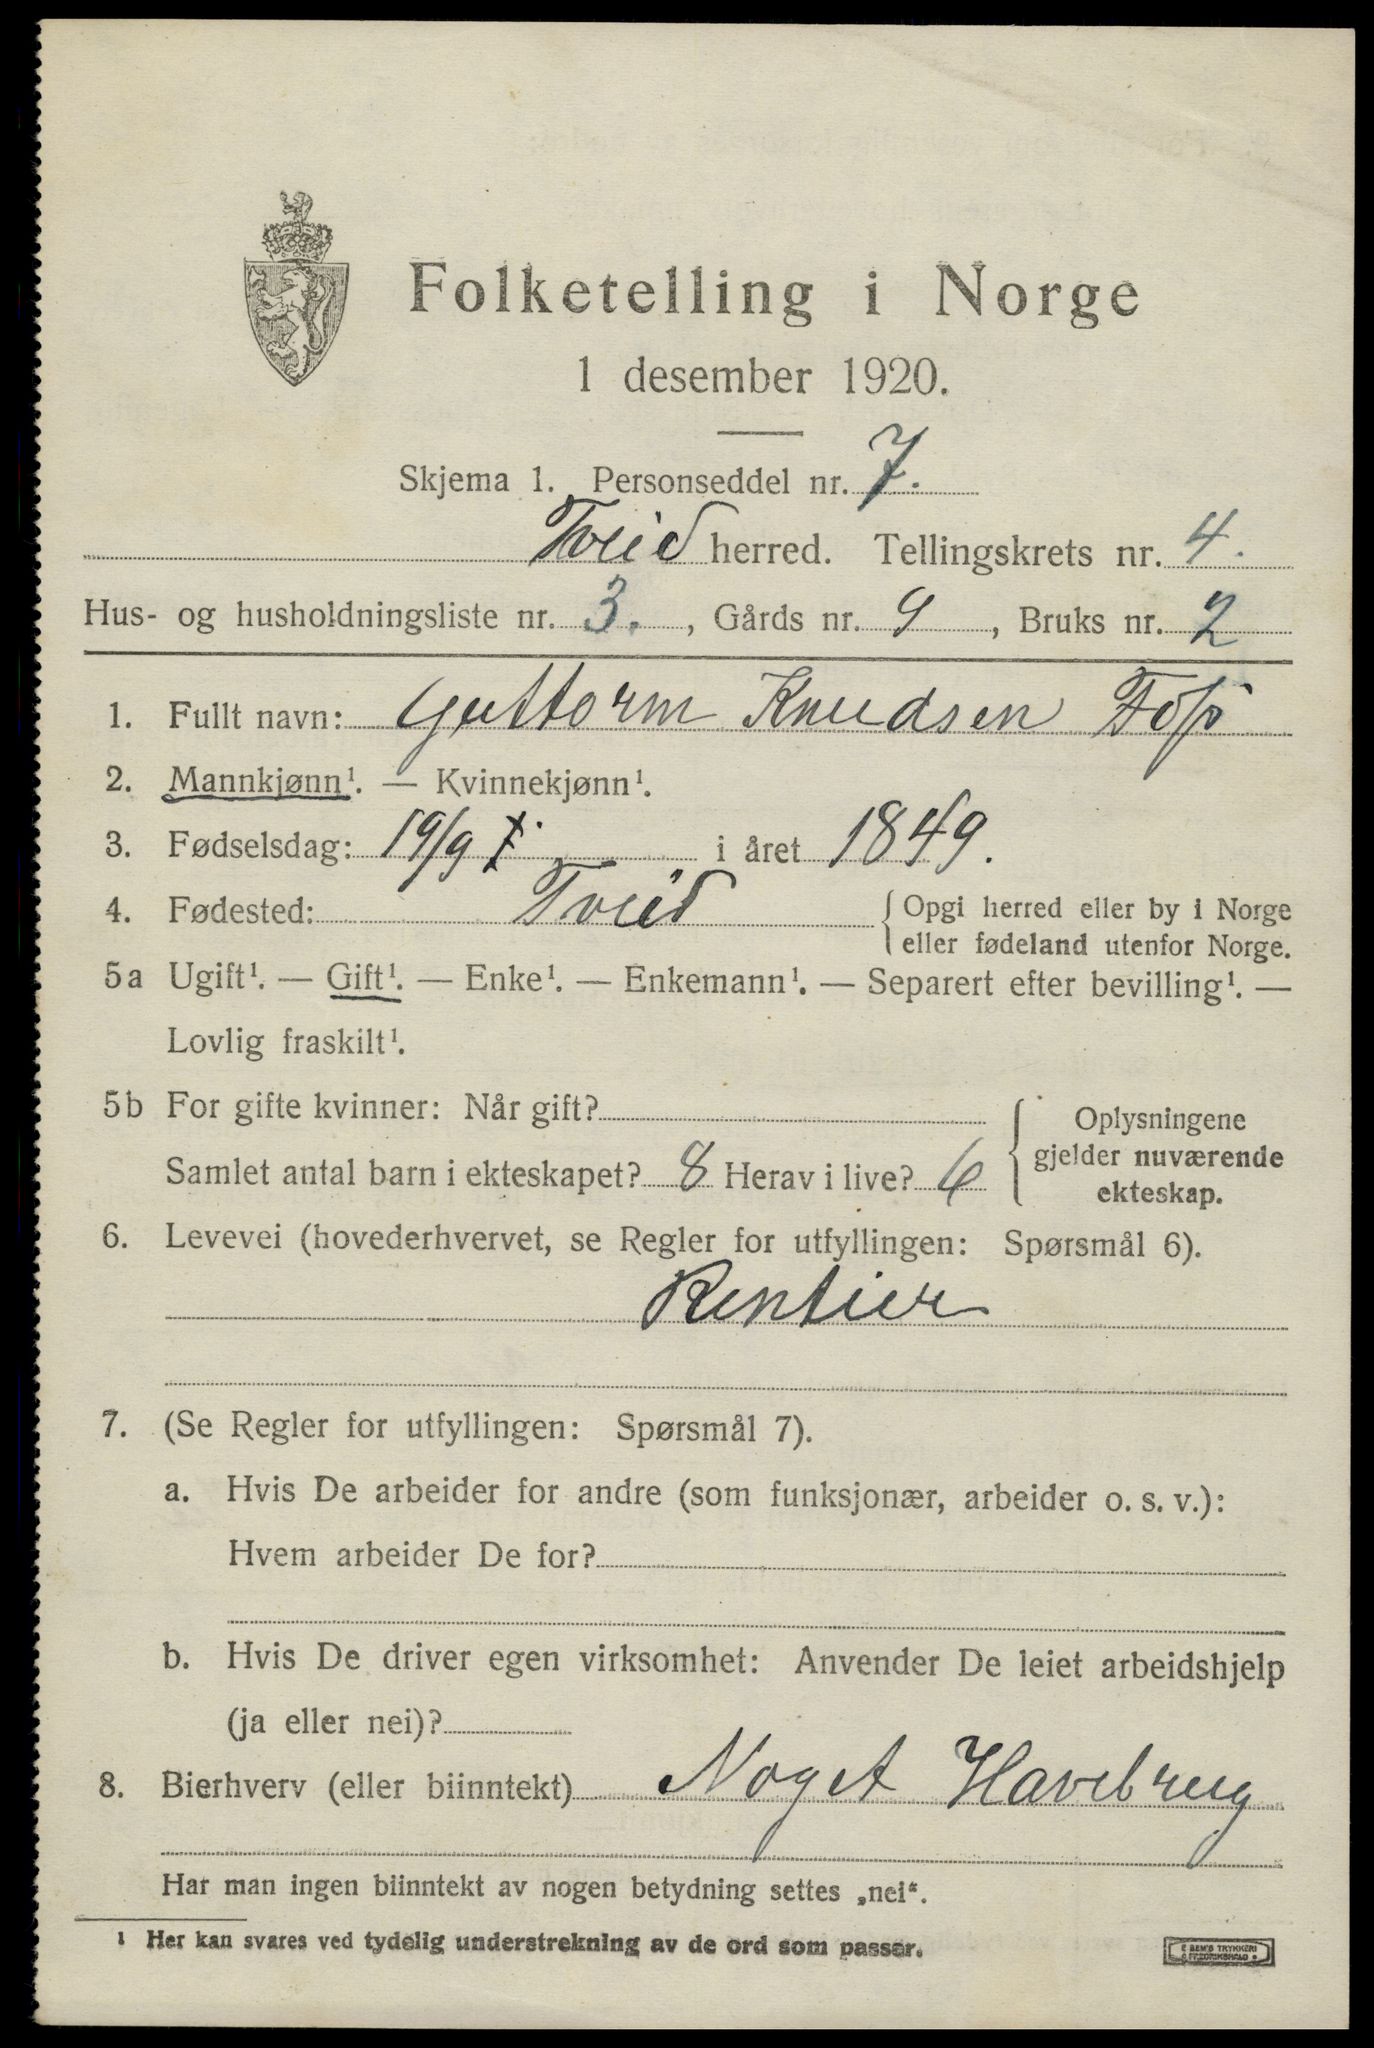 Folketelling i Norge
1 desember 1920.
Skjema 1. Personseddel nr. 7.
Tveid herred. Tellingskrets nr. 4.
Hus- og husholdningsliste nr. 3. , Gårds nr. 9 , Bruks nr. 2
1. Fullt navn: Guttorm Knudsen Foss
2. Mannkjønn¹. — Kvinnekjønn¹.
3. Fødselsdag: 19/9 i året 1849.
4. Fødested: Tveid { Opgi herred eller by i Norge
eller fødeland utenfor Norge.
5a Ugift¹. — Gift¹. — Enke¹. — Enkemann¹. — Separert efter bevilling¹. —
Lovlig fraskilt¹.
5b For gifte kvinner: Når gift? { Oplysningene
gjelder nuværende
ekteskap.
Samlet antal barn i ekteskapet? 8 Herav i live? 6
6. Levevei (hovederhvervet, se Regler for utfyllingen: Spørsmål 6).
Rentier
7. (Se Regler for utfyllingen: Spørsmål 7).
a. Hvis De arbeider for andre (som funksjonær, arbeider o. s. v.):
Hvem arbeider De for?
b. Hvis De driver egen virksomhet: Anvender De leiet arbeidshjelp
(ja eller nei)?
8. Bierhverv (eller biinntekt) Noget Havebrug
Har man ingen biinntekt av nogen betydning settes „nei“.
¹ Her kan svares ved tydelig understrekning av de ord som passer.
E SEM'S TRYKKERI
FREDRIKSHALD